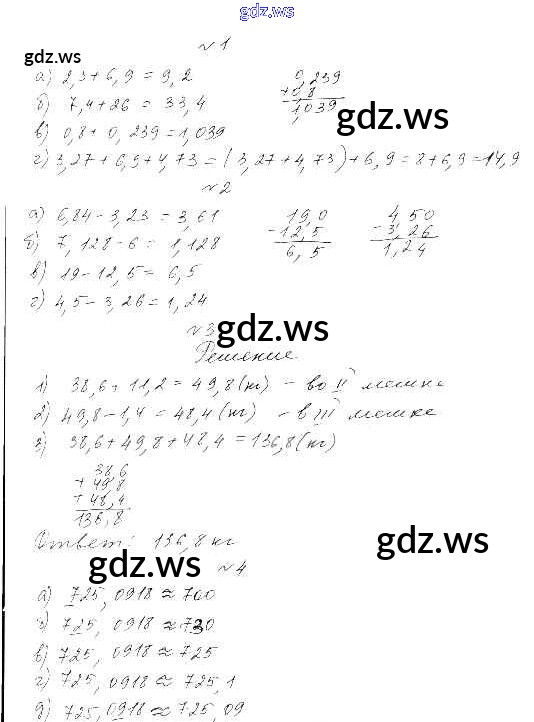 gdz.ws
№1
gdz.ws
а) 2,3+6,9 = 9,2
б) 7,4+26 = 33,4
в) 0,8+0,239=1,039
0,239
+0,8
1,039
gdz.ws
г) 3,27+6,9+4,73=(3,27+4,73)+6,9=8+6,9=14,9
№2
а) 6,84-3,23=3,61
б) 7,128-6=1,128
в) 19-12,5=6,5
г) 4,5-3,26=1,24
19,0
-12,5
6,5
4 50
-3,26
1,24
№3
gdz.ws
Решение.
1) 38,6+11,2=49,8(кг) - во II мешке
2) 49,8-1,4=48,4(кг) - в III мешке
3) 38,6+49,8+48,4=136,8(кг)
38,6
+ 49,8
+ 48,4
136,8
Ответ: 136,8 кг
gdz.ws
gdz.ws
№4
а) 725,0918≈700
725,0918≈730
в) 725,0918≈725
г) 725,0918≈725,1
д) 725,0918≈725,09